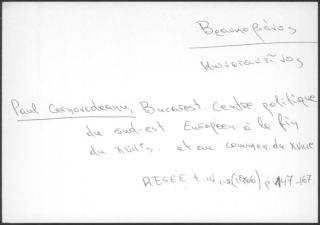 Βρανκοβάνος
Κωνσταντῖνος
Paul Cernovodeanu, Bucarest. Centre politique
du sud-est Européen à la fin
du XVIIe s. et au commen. du XVIIIe
RESEE t. IV 1-2 (1966) p. 147-167